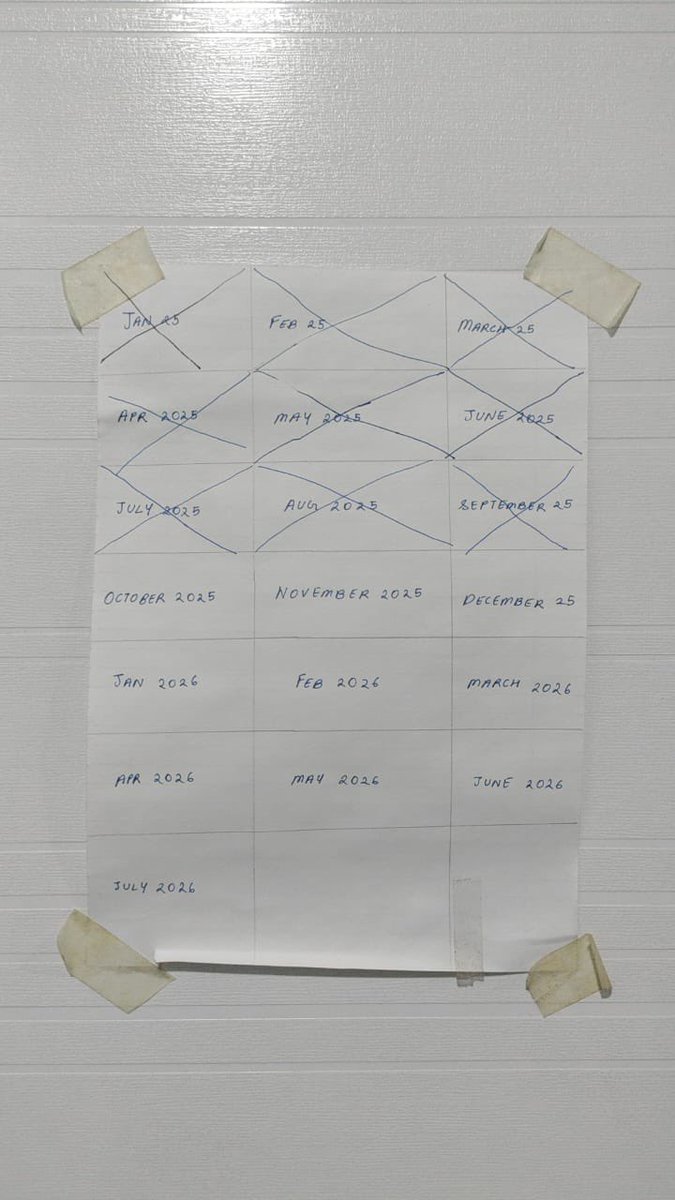 JAN 25 FEB 25 MARCH 25
APR 2025 MAY 2025 JUNE 2025
JULY 2025 AUG 2025 SEPTEMBER 25
OCTOBER 2025 NOVEMBER 2025 DECEMBER 25
JAN 2026 FEB 2026 MARCH 2026
APR 2026 MAY 2026 JUNE 2026
JULY 2026